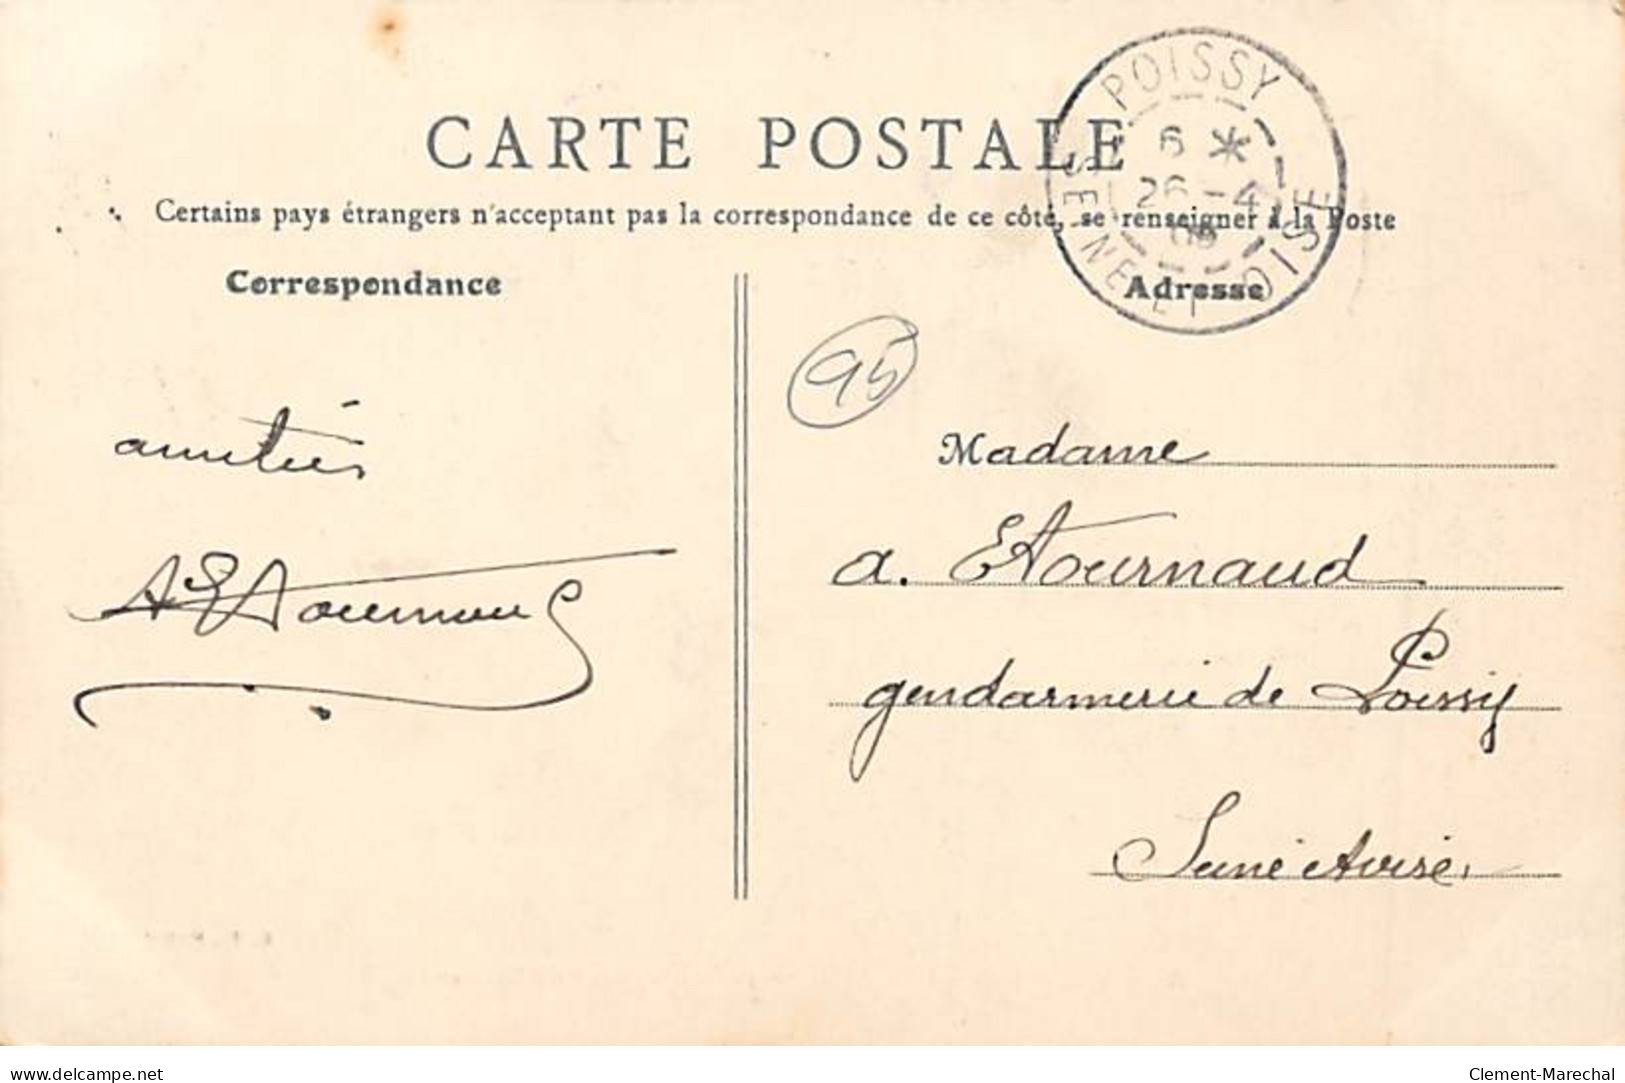 CARTE POSTALE
Certains pays étrangers n'acceptant pas la correspondance de ce côté, se renseigner à la Poste
POISSY
6 *
26 - 4
SEINE ET OISE
Correspondance
Adresse
95
amitiés
Madame
a. Etournaud
gendarmerie de Poissy
Seine et Oise.
delcampe.net
Clement-Marechal